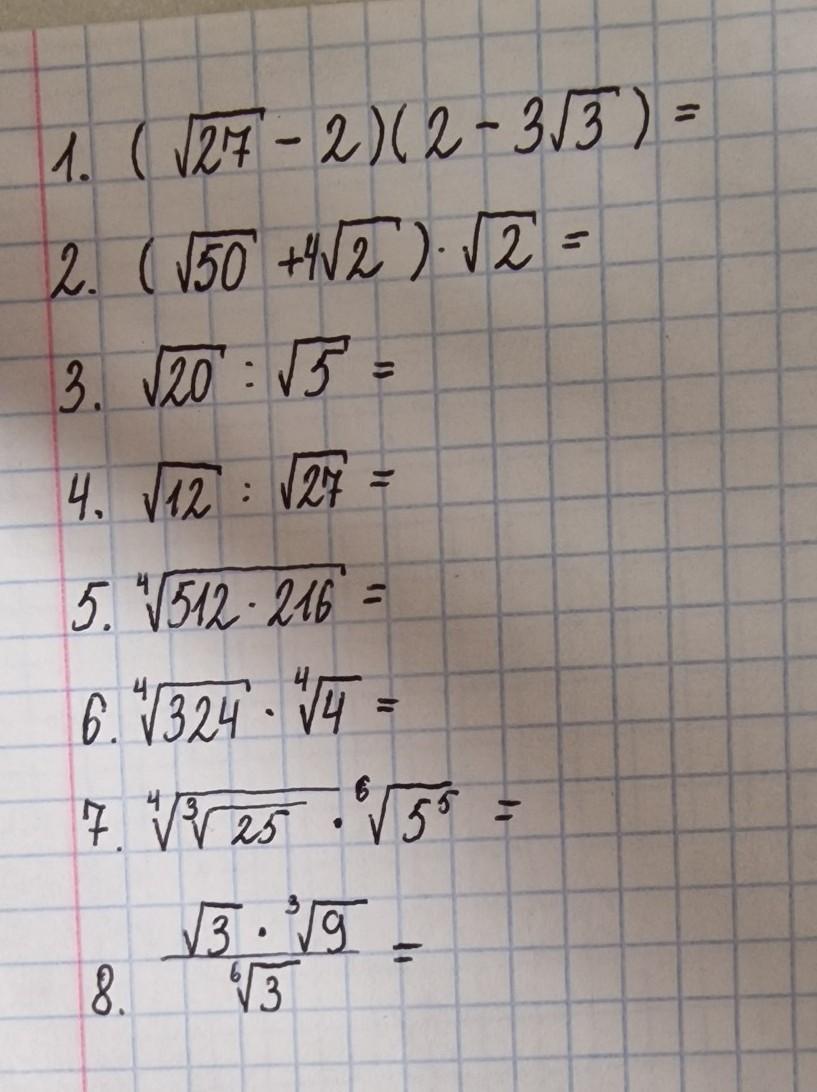 1. (√27 - 2)(2 - 3√3) =
2. (√50 + 4√2) · √2 =
3. √20 : √5 =
4. √12 : √27 =
5. ⁴√(512 · 216) =
6. ⁴√324 · ⁴√4 =
7. ⁴√(³√25) · ⁶√(5⁵) =
8. (√3 · ³√9) / ⁶√3 =